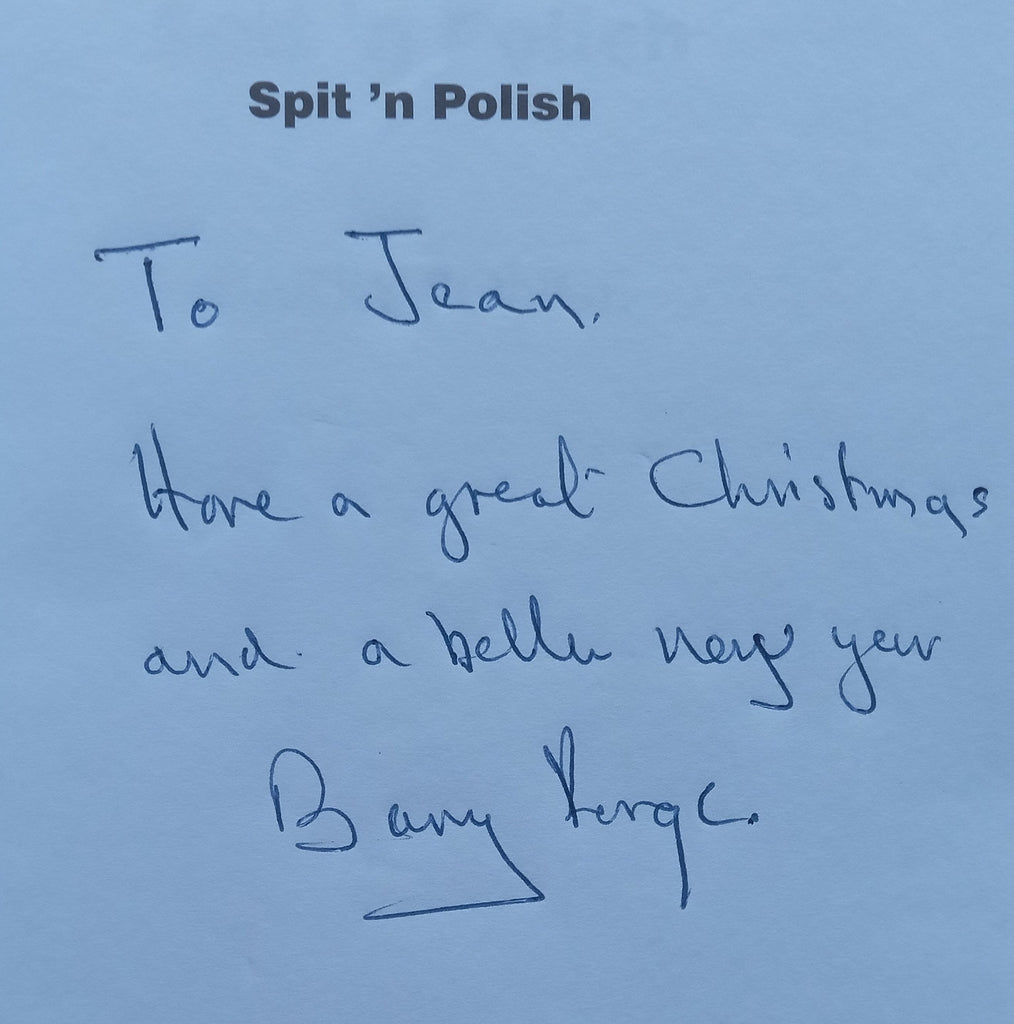 Spit 'n Polish
To Jean.
Have a great Christmas
and a better new year
Barry